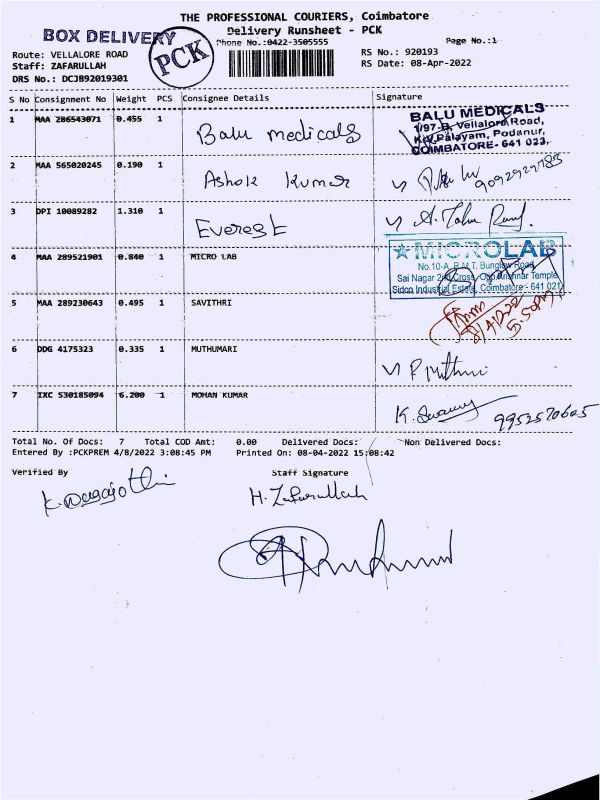 THE PROFESSIONAL COURIERS, Coimbatore
BOX DELIVERY
PCK
Delivery Runsheet - PCK
Phone No.:0422-3505555
Page No.:1
Route: VELLALORE ROAD
RS No.: 920193
Staff: ZAFARULLAH
RS Date: 08-Apr-2022
DRS No.: DCJB92019301
S No Consignment No Weight PCS Consignee Details Signature
1 MAA 286543071 0.455 1 Balu medicals
BALU MEDICALS
1/97-B, Vellalore Road,
K.V.Palayam, Podanur,
COIMBATORE - 641 023.
2 MAA 565020245 0.190 1 Ashok Kumar
3 DPI 10089282 1.310 1 Everest
4 MAA 289521901 0.840 1 MICRO LAB
MICROLAB
No.10-A, R.M.T. Bunglow Road
Sai Nagar 2nd Cross, Opp. Ayyannar Temple
Sidco Industrial Estate, Coimbatore - 641 021
5 MAA 289230643 0.495 1 SAVITHRI
8/4/22
5.50pm
6 DDG 4175323 0.335 1 MUTHUMARI
P. Muthu
7 IXC 530185094 6.200 1 MOHAN KUMAR
K. Swamy 9952570605
Total No. Of Docs: 7 Total COD Amt: 0.00 Delivered Docs: Non Delivered Docs:
Entered By :PCKPREM 4/8/2022 3:08:45 PM Printed On: 08-04-2022 15:08:42
Verified By Staff Signature
H. Zafarullah